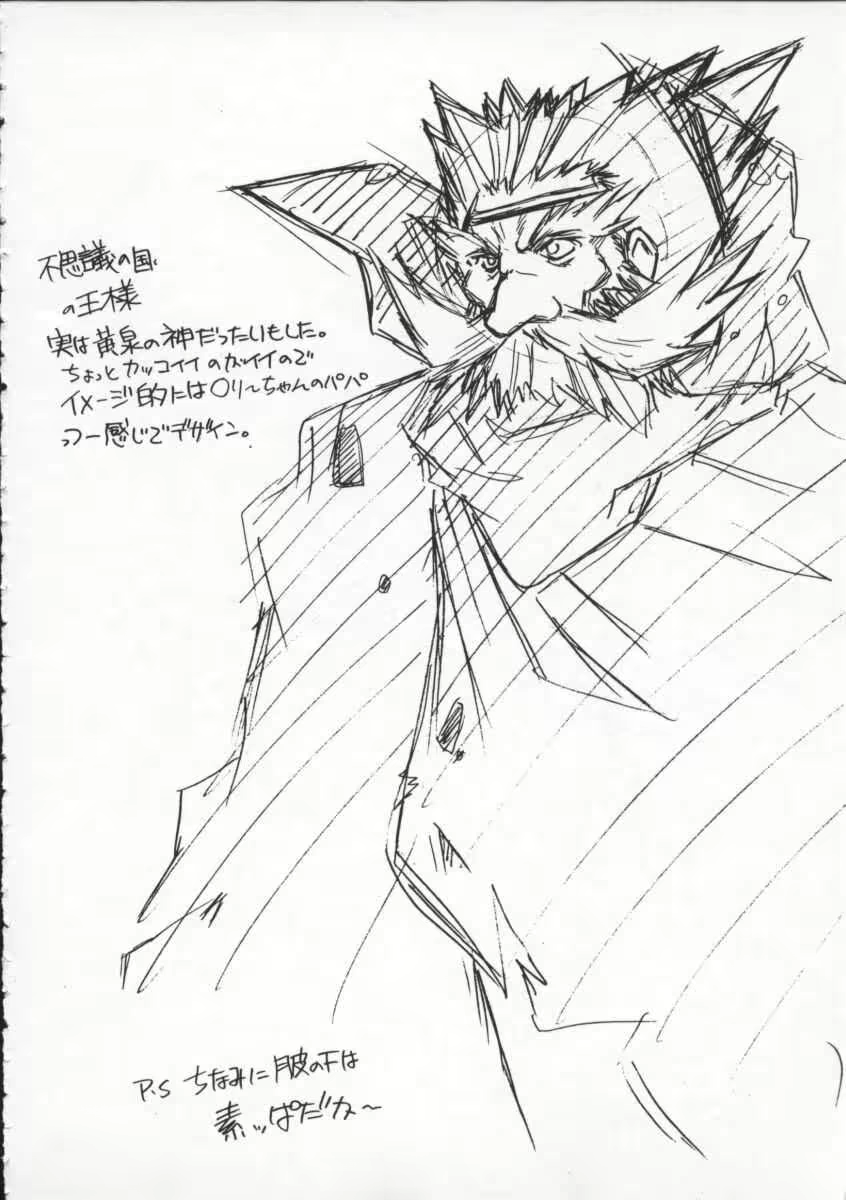 不思議の国
の王様
実は黄泉の神だったりもした。
ちょっとカッコイイのがイイので
イメージ的には〇リ〜ちゃんのパパ
っつー感じでデザイン。
P.S ちなみに 皮の下は
素ッぱだか〜